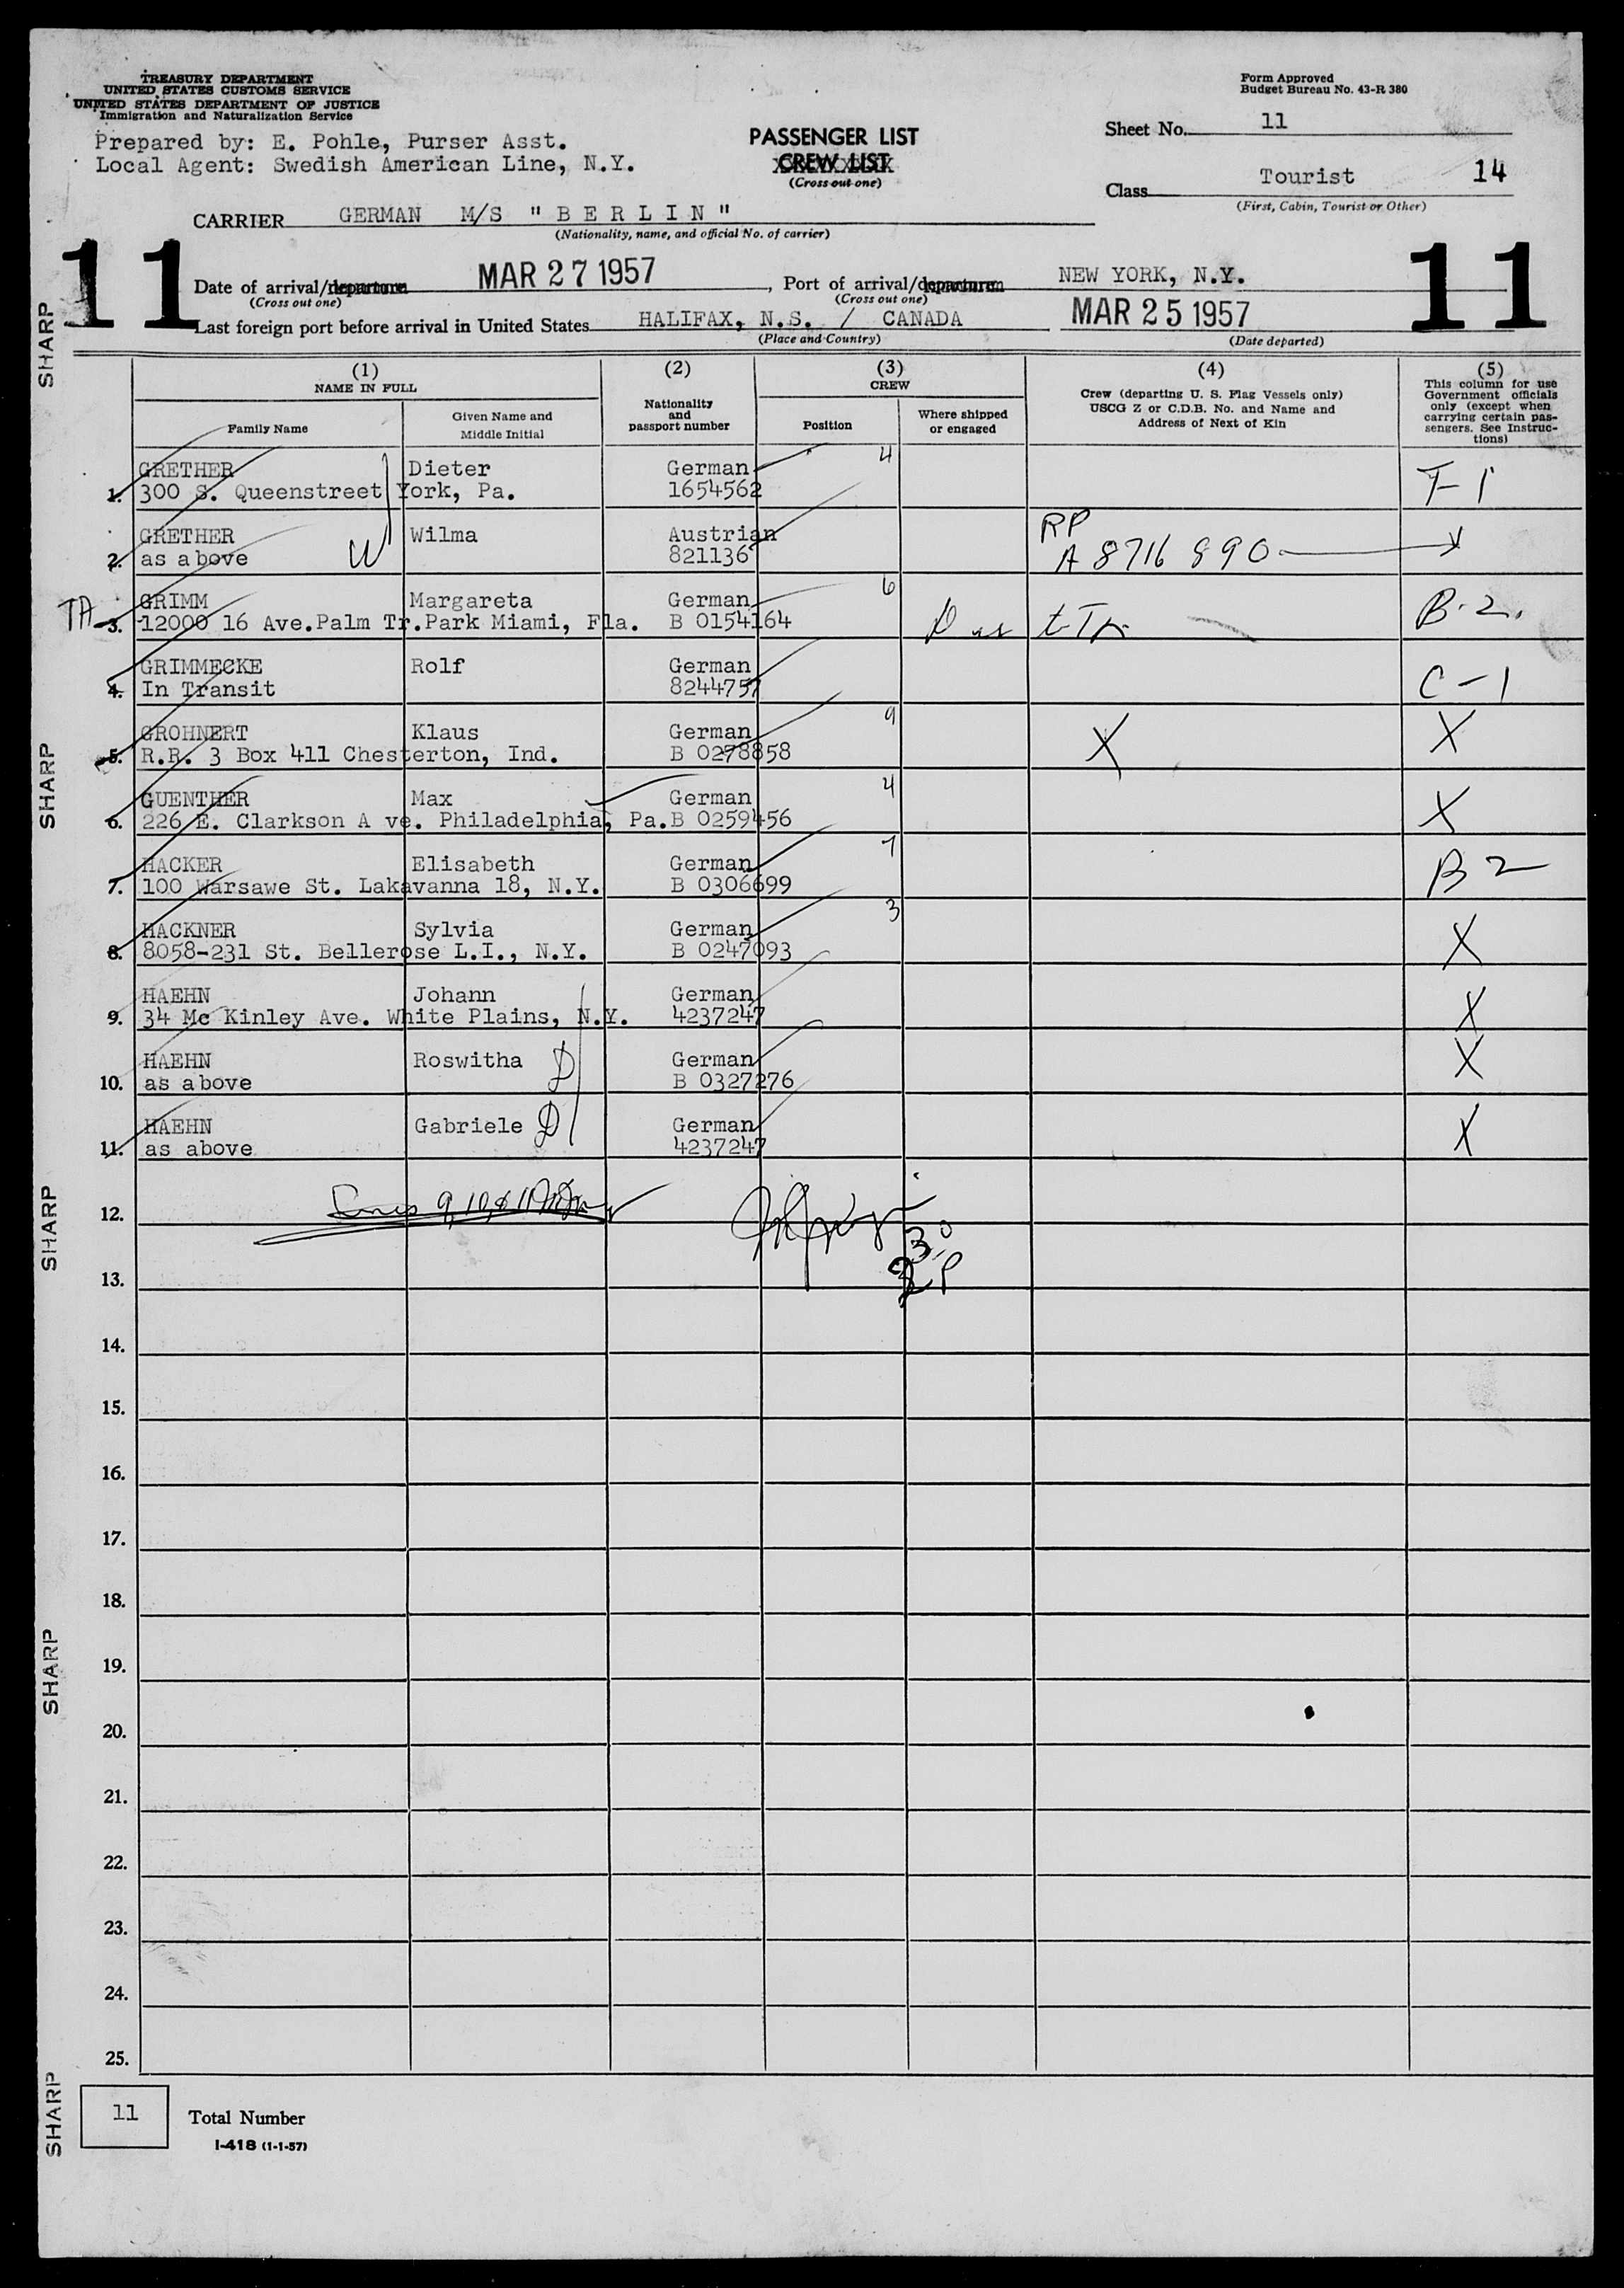 TREASURY DEPARTMENT
UNITED STATES CUSTOMS SERVICE
UNITED STATES DEPARTMENT OF JUSTICE
Immigration and Naturalization Service
Form Approved
Budget Bureau No. 43-R 380
Prepared by: E. Pohle, Purser Asst.
Local Agent: Swedish American Line, N.Y.
PASSENGER LIST
CREW LIST
(Cross out one)
Sheet No. 11
Class Tourist 14
(First, Cabin, Tourist or Other)
CARRIER GERMAN M/S "BERLIN"
(Nationality, name, and official No. of carrier)
11
11
Date of arrival/departure MAR 27 1957, Port of arrival/departure NEW YORK, N.Y.
(Cross out one) (Cross out one)
Last foreign port before arrival in United States HALIFAX, N.S. / CANADA MAR 25 1957
(Place and Country) (Date departed)
(1)
NAME IN FULL
Family Name
Given Name and
Middle Initial
(2)
Nationality
and
passport number
(3)
CREW
Position
Where shipped
or engaged
(4)
Crew (departing U. S. Flag Vessels only)
USCG Z or C.D.B. No. and Name and
Address of Next of Kin
(5)
This column for use
Government officials
only (except when
carrying certain pas-
sengers. See Instruc-
tions)
GRETHER Dieter German 4
1. 300 S. Queenstreet York, Pa. 1654562 F-1
GRETHER Wilma Austrian RP
2. as above W 821136 A 8716 890
GRIMM Margareta German 6
TA 3. 12000 16 Ave.Palm Tr.Park Miami, Fla. B 0154164 B-2.
GRIMMECKE Rolf German
4. In Transit 8244757 C-1
GROHNERT Klaus German 9
5. R.R. 3 Box 411 Chesterton, Ind. B 0278858 X X
GUENTHER Max German 4
6. 226 E. Clarkson A ve. Philadelphia, Pa. B 0259456 X
HACKER Elisabeth German 7
7. 100 Warsawe St. Lakavanna 18, N.Y. B 0306699 B2
HACKNER Sylvia German 3
8. 8058-231 St. Bellerose L.I., N.Y. B 0247093 X
HAEHN Johann German
9. 34 Mc Kinley Ave. White Plains, N.Y. 4237247 X
HAEHN Roswitha D German
10. as above B 0327276 X
HAEHN Gabriele D German
11. as above 4237247 X
12. Lines 9, 10, & 11
13.
14.
15.
16.
17.
18.
19.
20.
21.
22.
23.
24.
25.
11 Total Number
I-418 (1-1-57)
SHARP
SHARP
SHARP
SHARP
SHARP